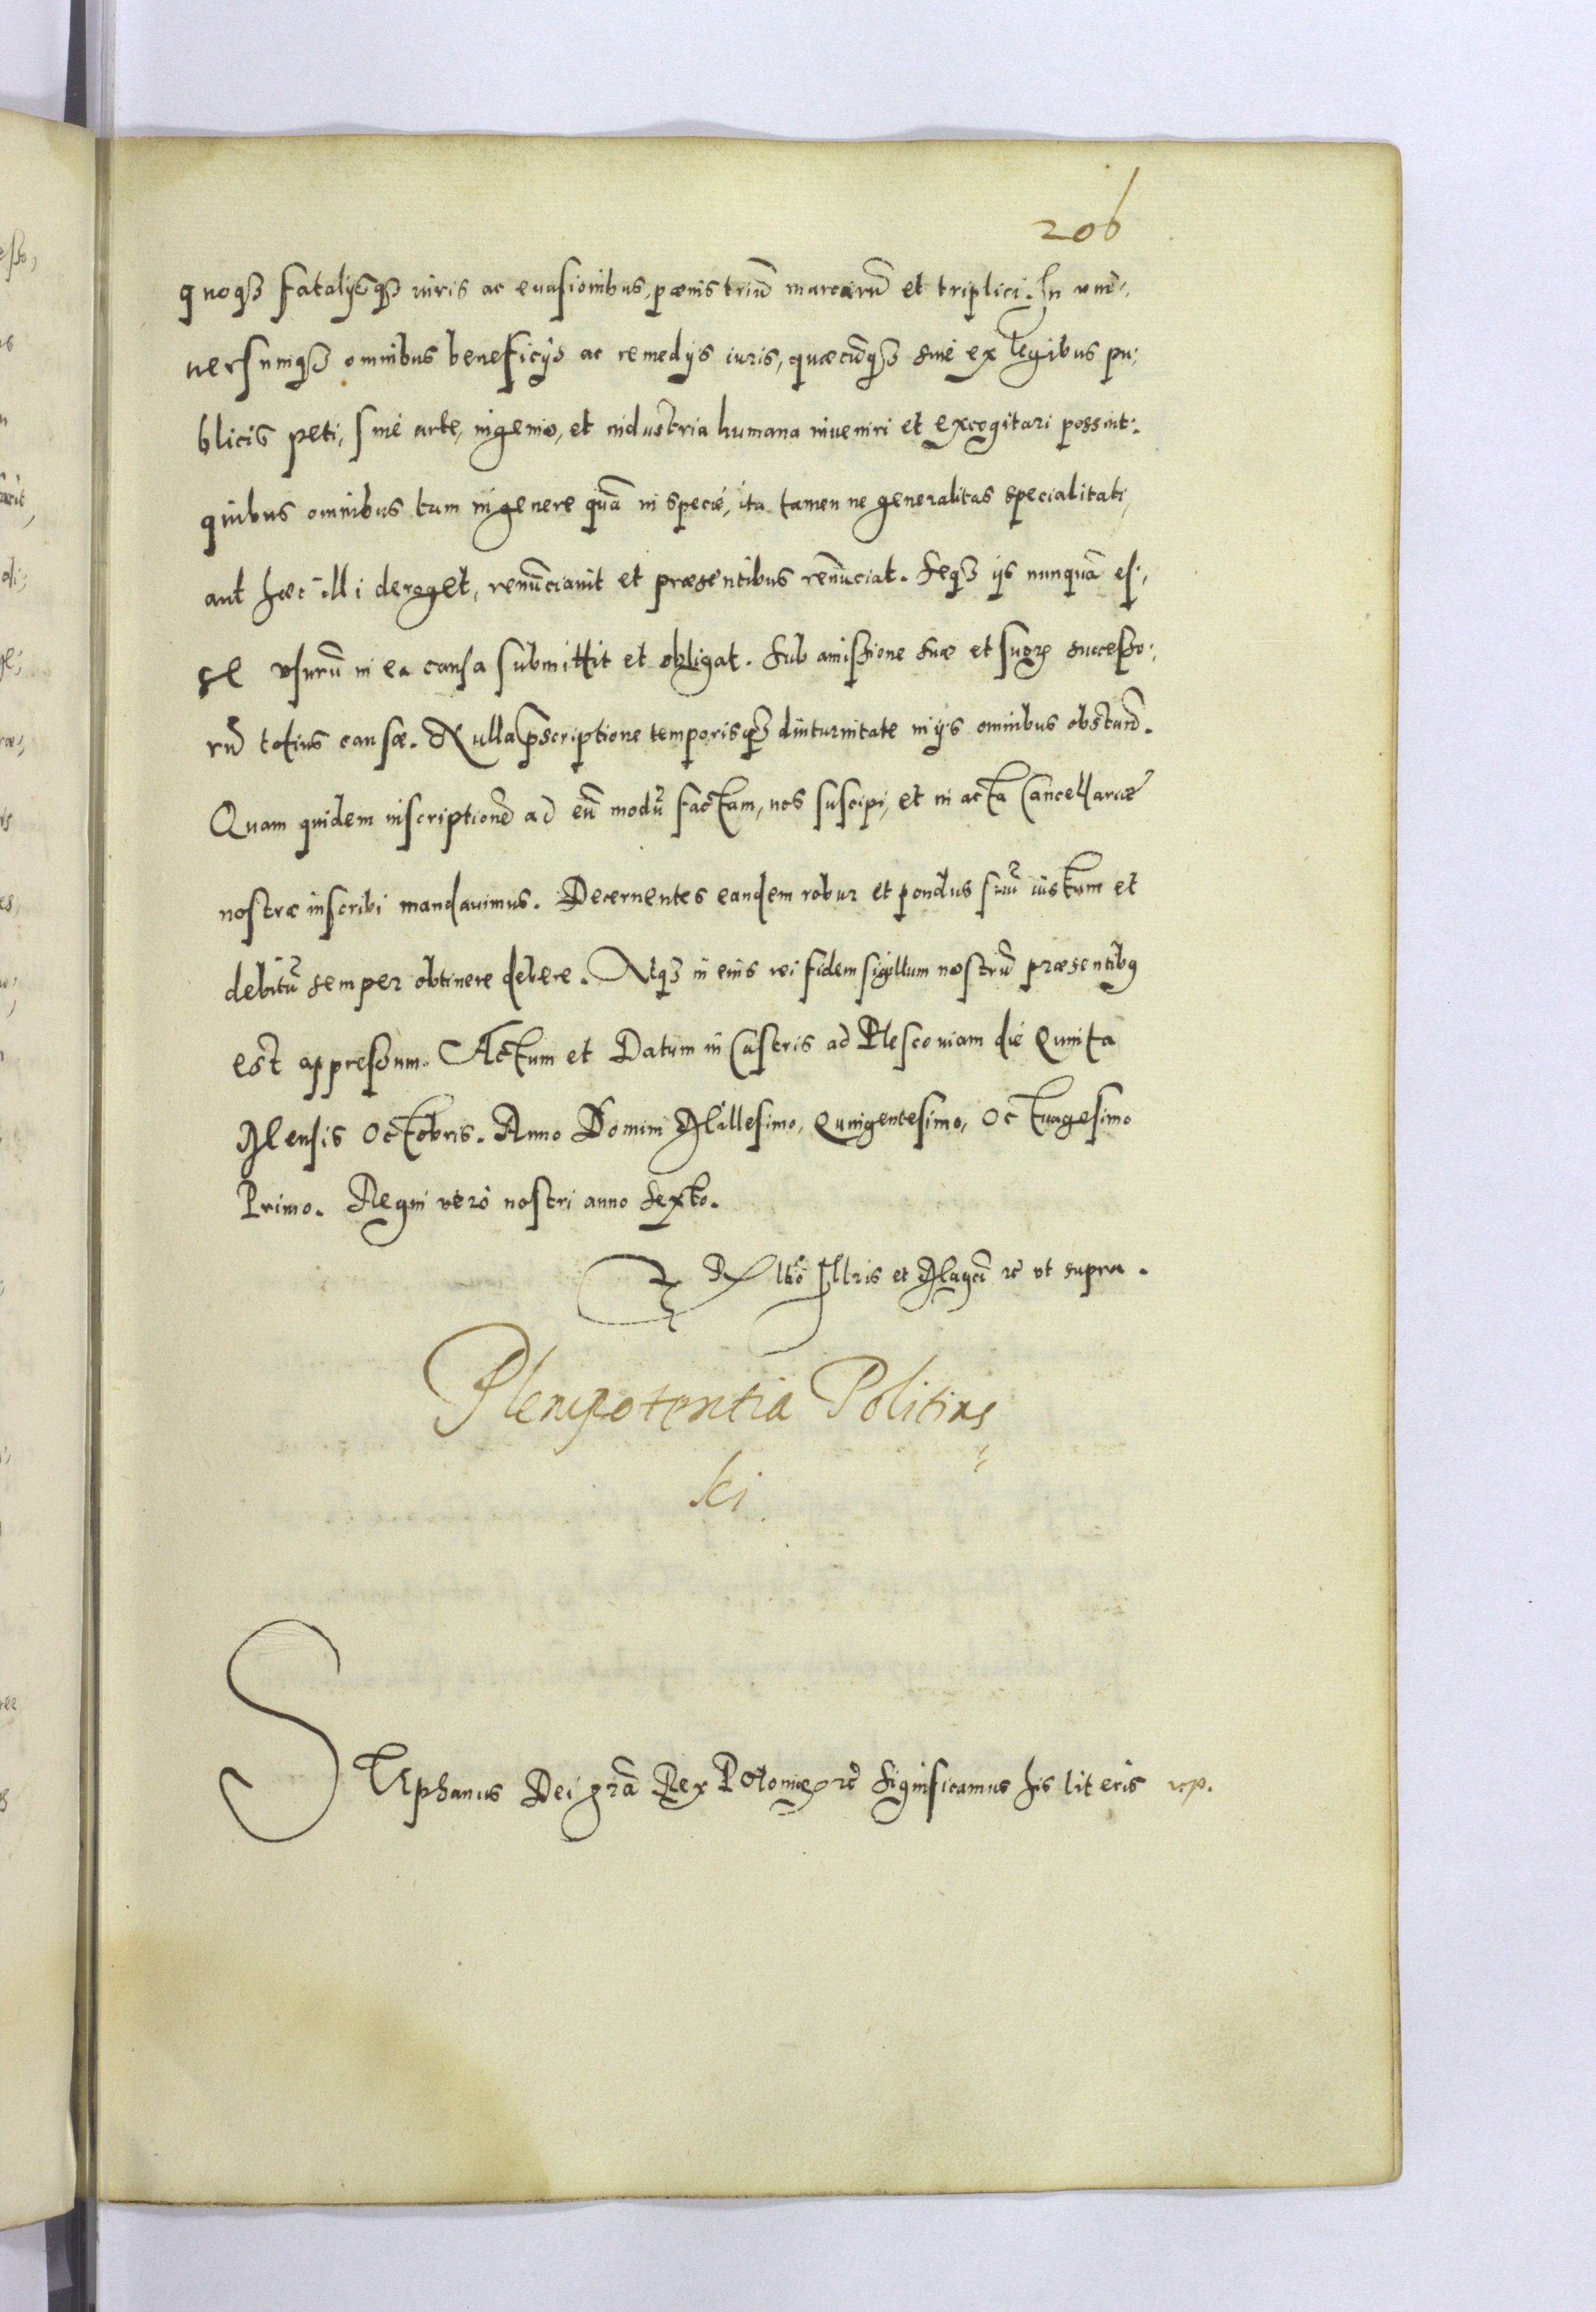 206
quoqꝫ fatalijsqꝫ iuris ac euasionibus, pœnis triū marcarū et triplici. In vni⸗
uersumqꝫ omnibus beneficijs ac remedijs iuris, quæcūqꝫ siué ex legibus pu⸗
blicis peti, siué arte, ingenio, et industria humana inueniri et excogitari possint:
quibus omnibus tam in genere quā in specié, ita tamen ne generalitas specialitati,
aut hæc illi deroget, renūciauit et præsentibus renūciat. Seqꝫ ijs nunquā es⸗
se vsurū in ea causa submittit et obligat. Sub amissione suæ et suorꝝ successo⸗
rū totius causæ. Nulla p̄scriptione temporisqꝫ diuturnitate in ijs omnibus obstan̄.
Quam quidem inscriptionē ad eū modū factam, nos suscipi, et in acta Cancellariæ
nostræ inscribi mandauimus. Decernentes eandem robur et pondus suū iustum et
debitū semper obtinere debere. Atqꝫ in eius rei fidem sigillum nostrū præsentibꝯ
est appressum. Actum et Datum in Castris ad Plescouiam die Quinta
Mensis Octobris. Anno Domini Millesimo, Quingentesimo, Octuagesimo
Primo. Regni veró nostri anno Sexto.
Rltio Illris et Magci rc ut supra.
Plenipotentia Politins
ki
Stephanus Dei grā Rex Poloniæ rc Significamus his literis rp.